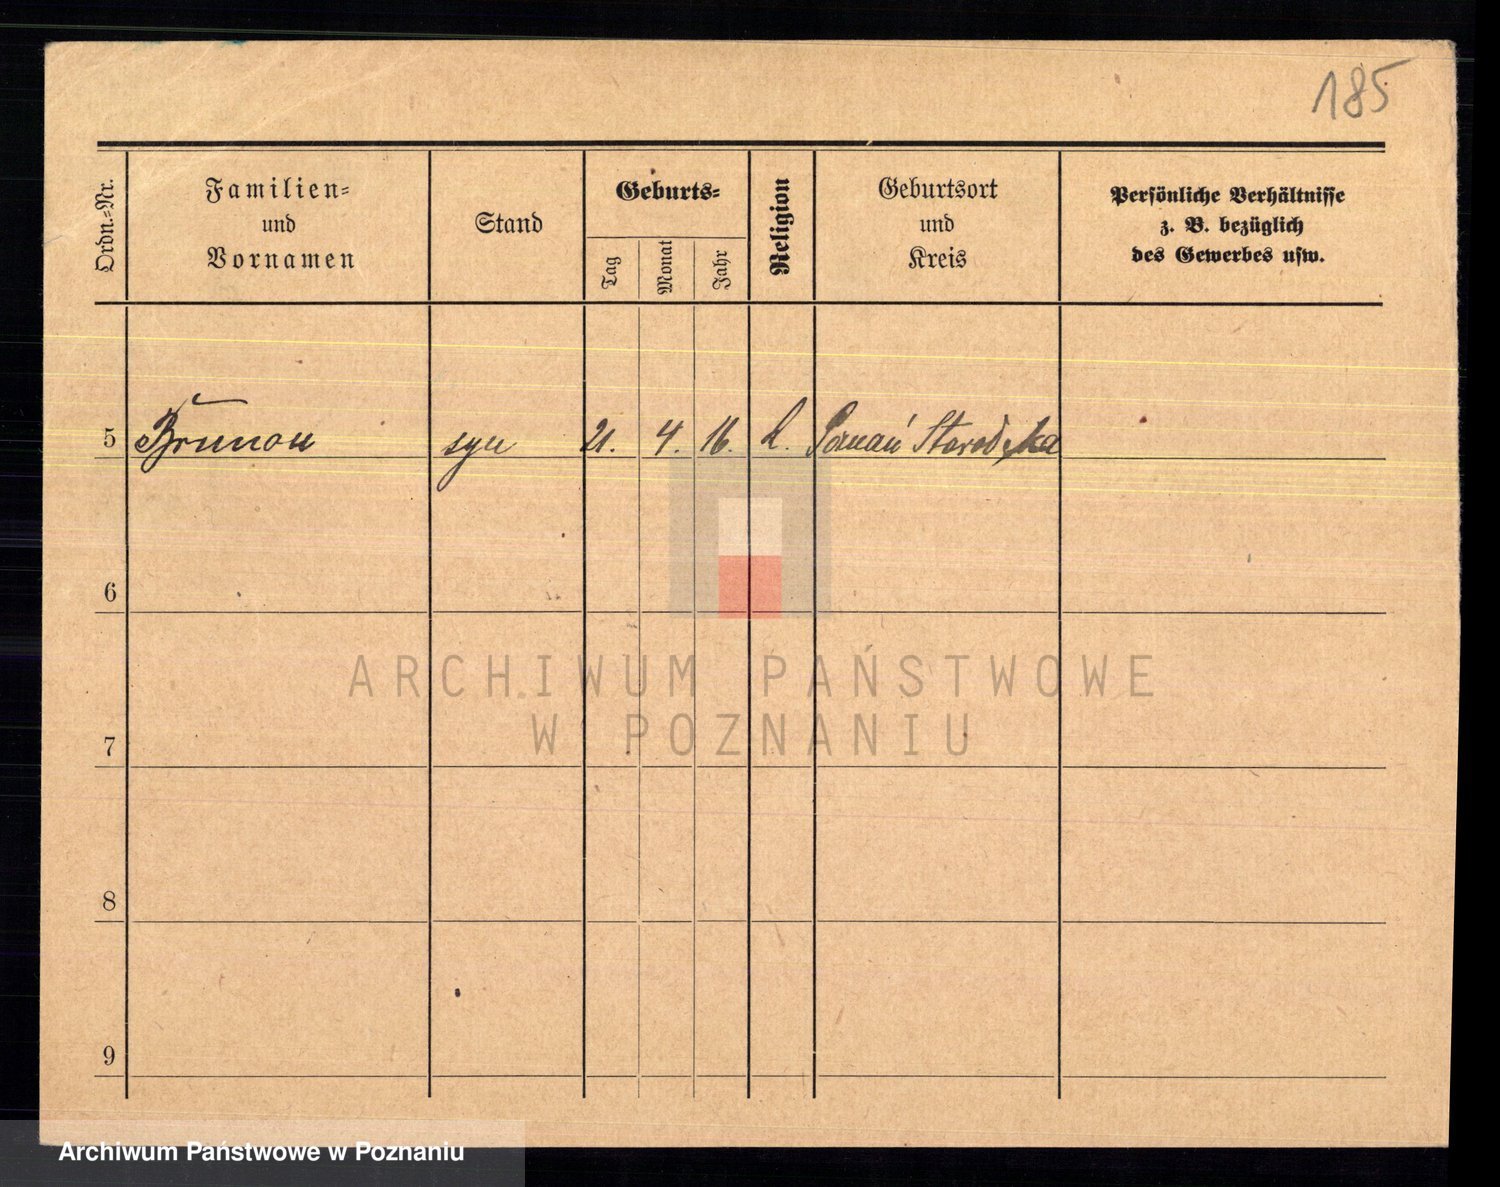 185
Ordn.=Nr.
Familien=
und
Vornamen
Stand
Geburts=
Tag
Monat
Jahr
Religion
Geburtsort
und
Kreis
Persönliche Verhältnisse
z. B. bezüglich
des Gewerbes usw.
5 Brunon syn 21. 4. 16. k. Poznań
6
7
8
9
ARCHIWUM PAŃSTWOWE
W POZNANIU
Archiwum Państwowe w Poznaniu